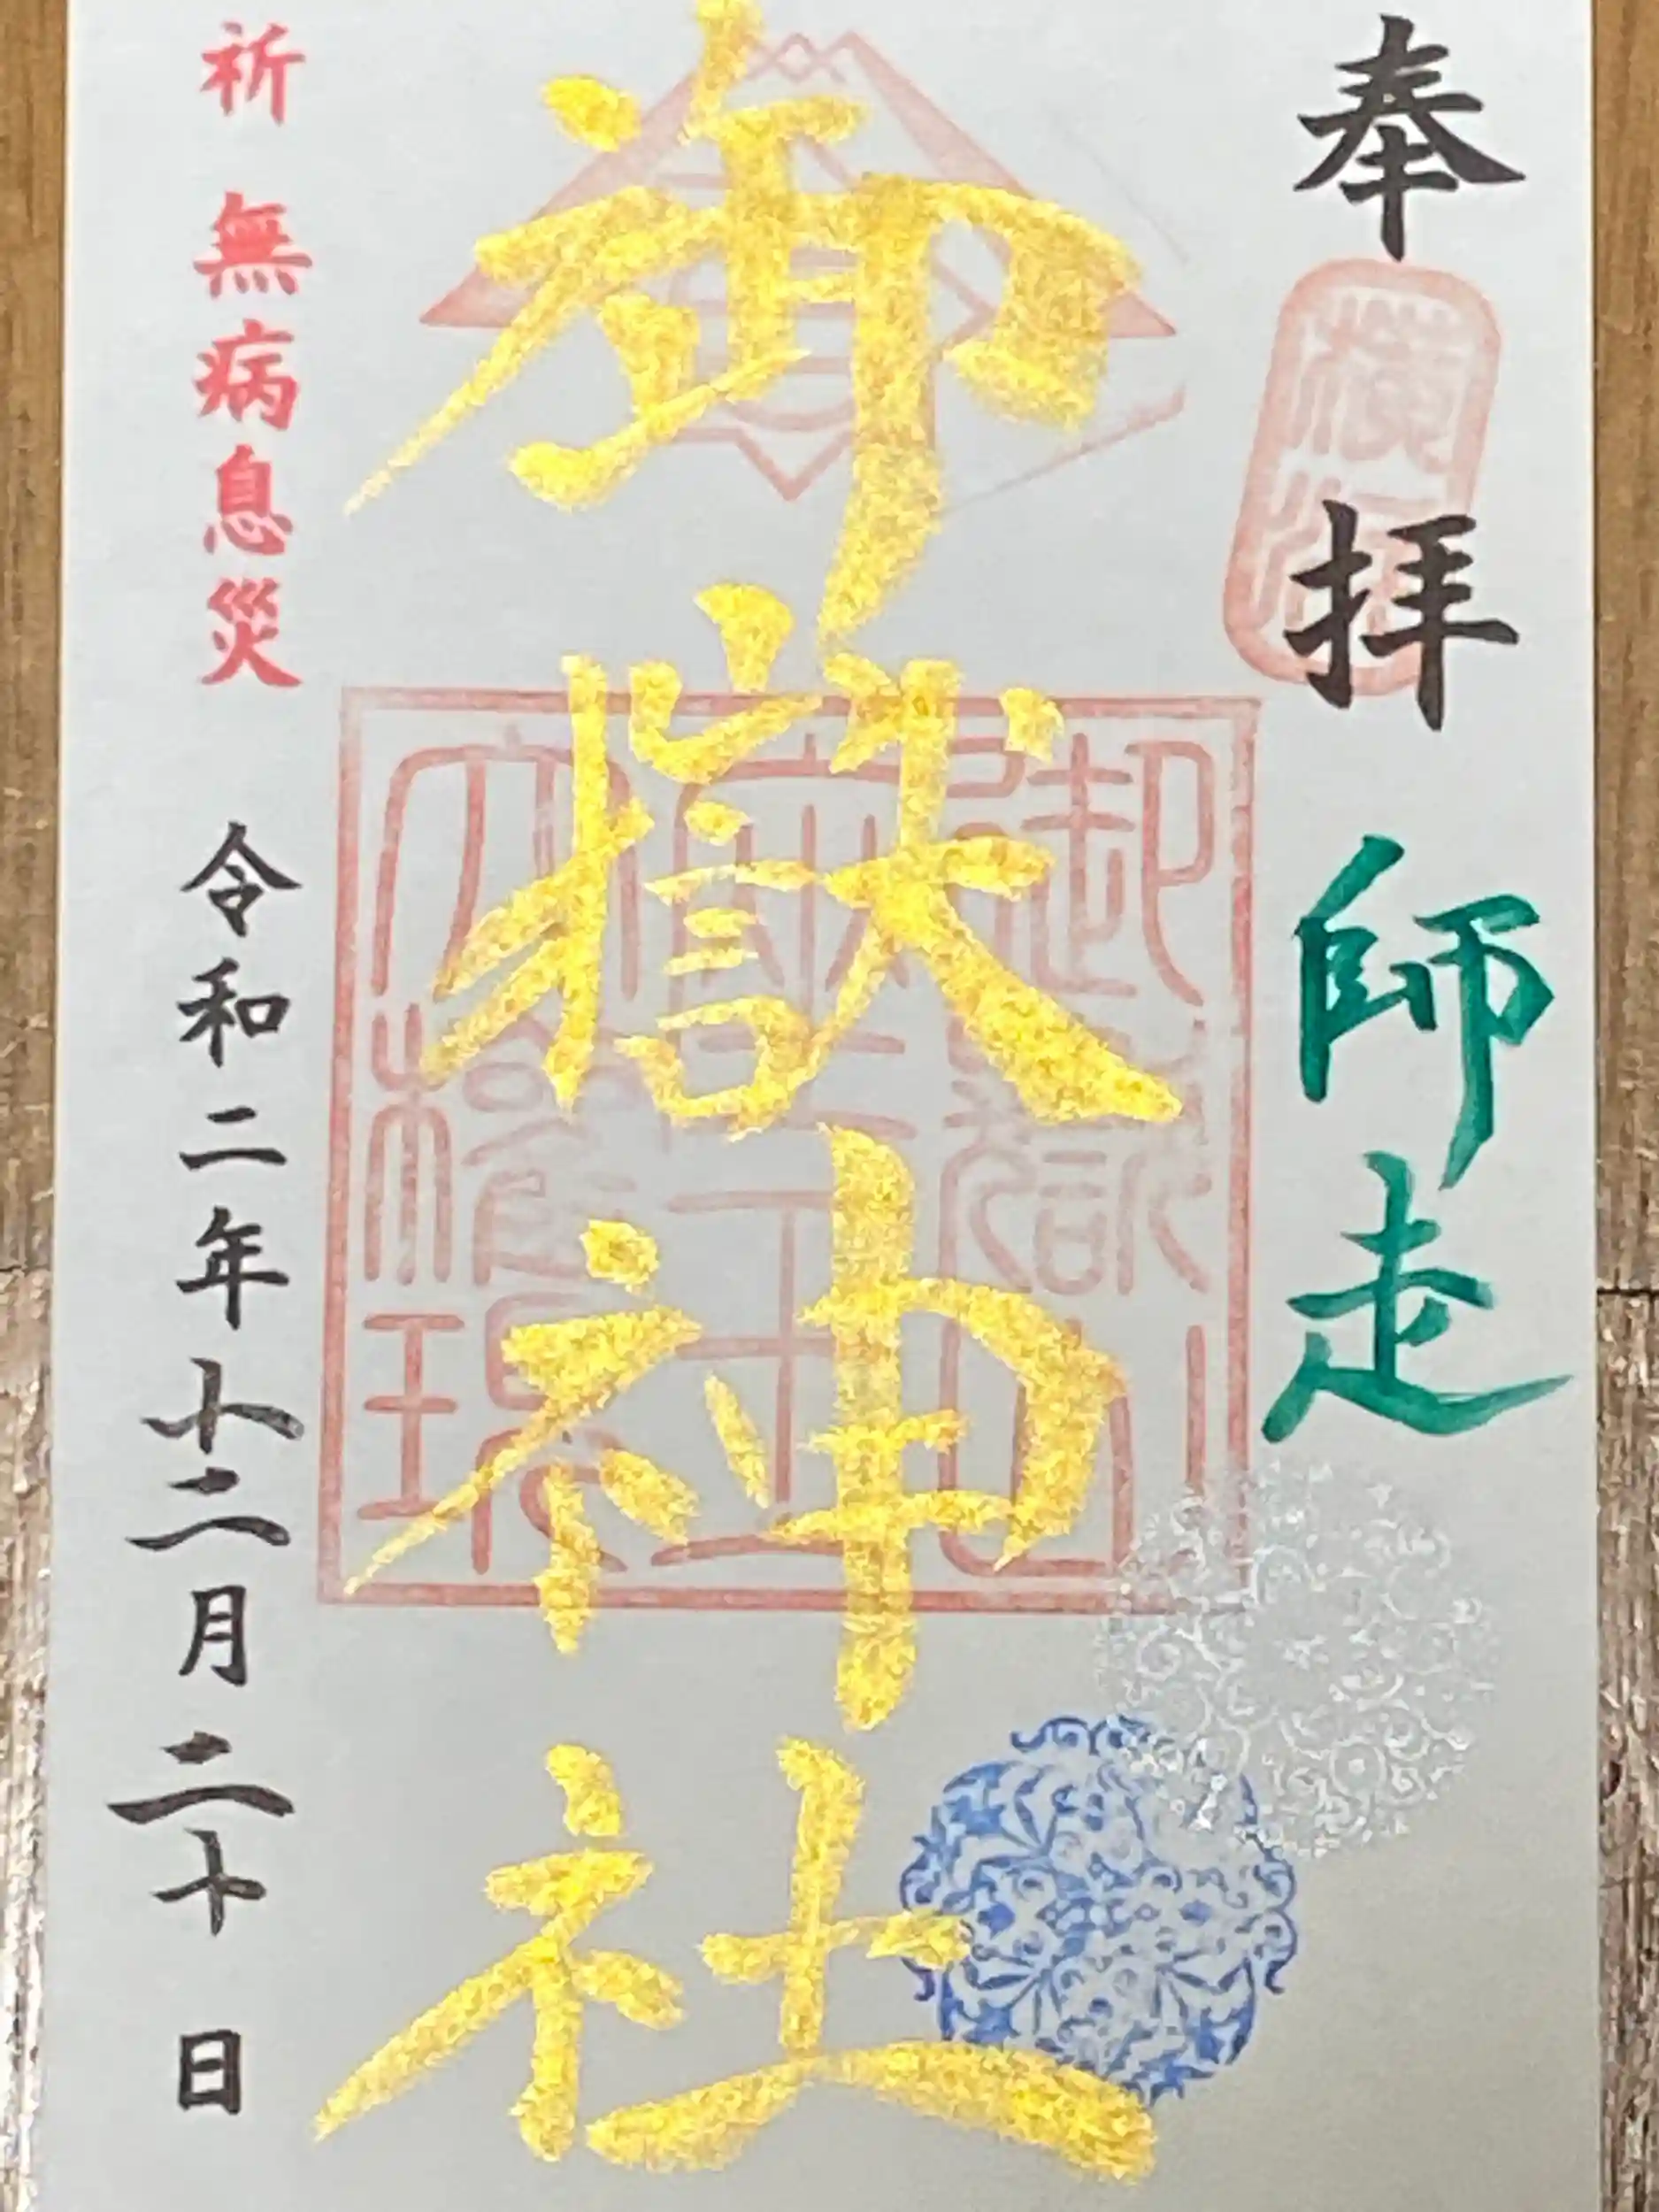 奉拝 師走
横浜
御嶽神社
御嶽山
祈 無病息災
令和二年十二月二十日